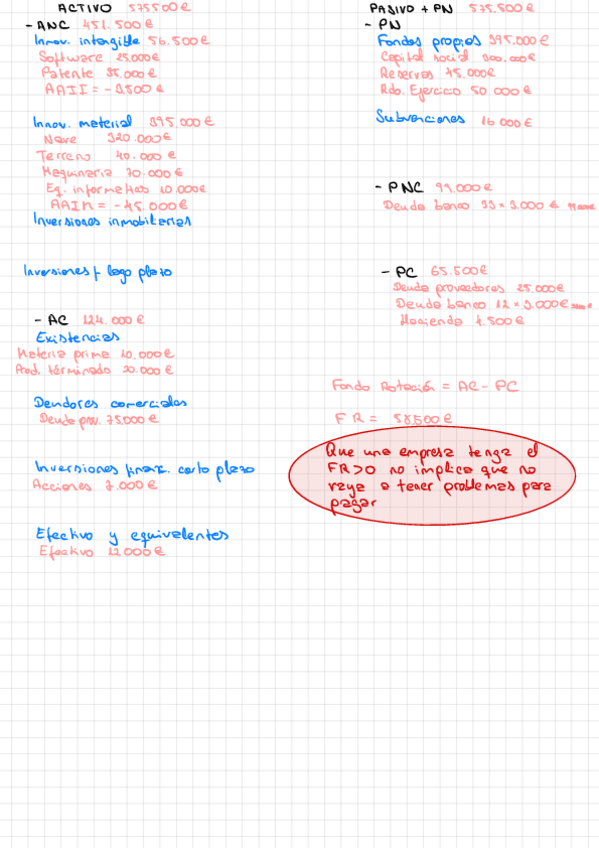 ACTIVO 575500 €
- ANC 451.500 €
Inmov. intangible 56.500 €
Software 25.000 €
Patente 35.000 €
AAII = - 3500 €
Inmov. material 395.000 €
Nave 320.000 €
Terreno 40.000 €
Maquinaria 70.000 €
Eq. informaticos 10.000 €
AAIM = - 45.000 €
Inversiones inmobiliarias
Inversiones f. largo plazo
- AC 124.000 €
Existencias
Materia prima 10.000 €
Prod. términado 20.000 €
Deudores comerciales
Deuda prov. 75.000 €
Inversiones finan. corto plazo
Acciones 7.000 €
Efectivo y equivalentes
Efectivo 12.000 €
PASIVO + PN 575.500 €
- PN
Fondos propios 395.000 €
Capital social 300.000 €
Reservas 45.000 €
Rdo. Ejercicio 50 000 €
Subvenciones 16 000 €
- PNC 99.000 €
Deuda banco 33 × 3.000 €
- PC 65.500 €
Deuda proveedores 25.000 €
Deuda banco 12 × 3.000 €
Hacienda 4.500 €
Fondo Rotación = AC - PC
FR = 58.500 €
Que una empresa tenga el
FR>0 no implica que no
vaya a tener problemas para
pagar